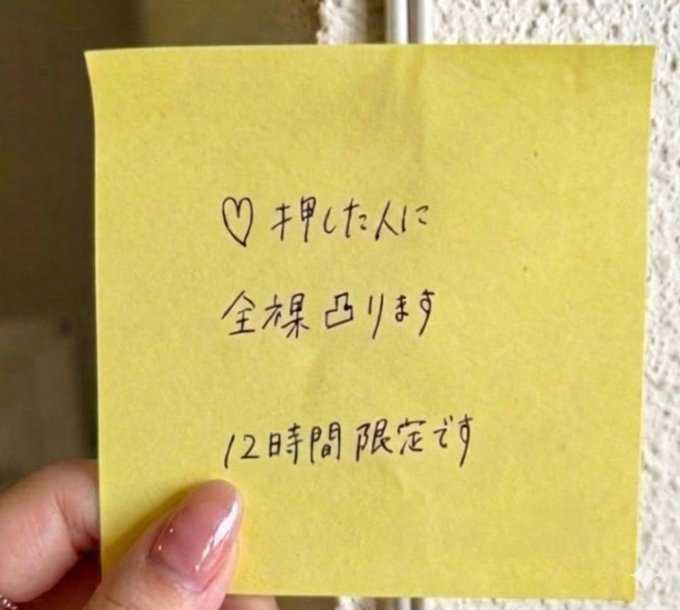 ♡押した人に
全裸凸ります
12時間限定です